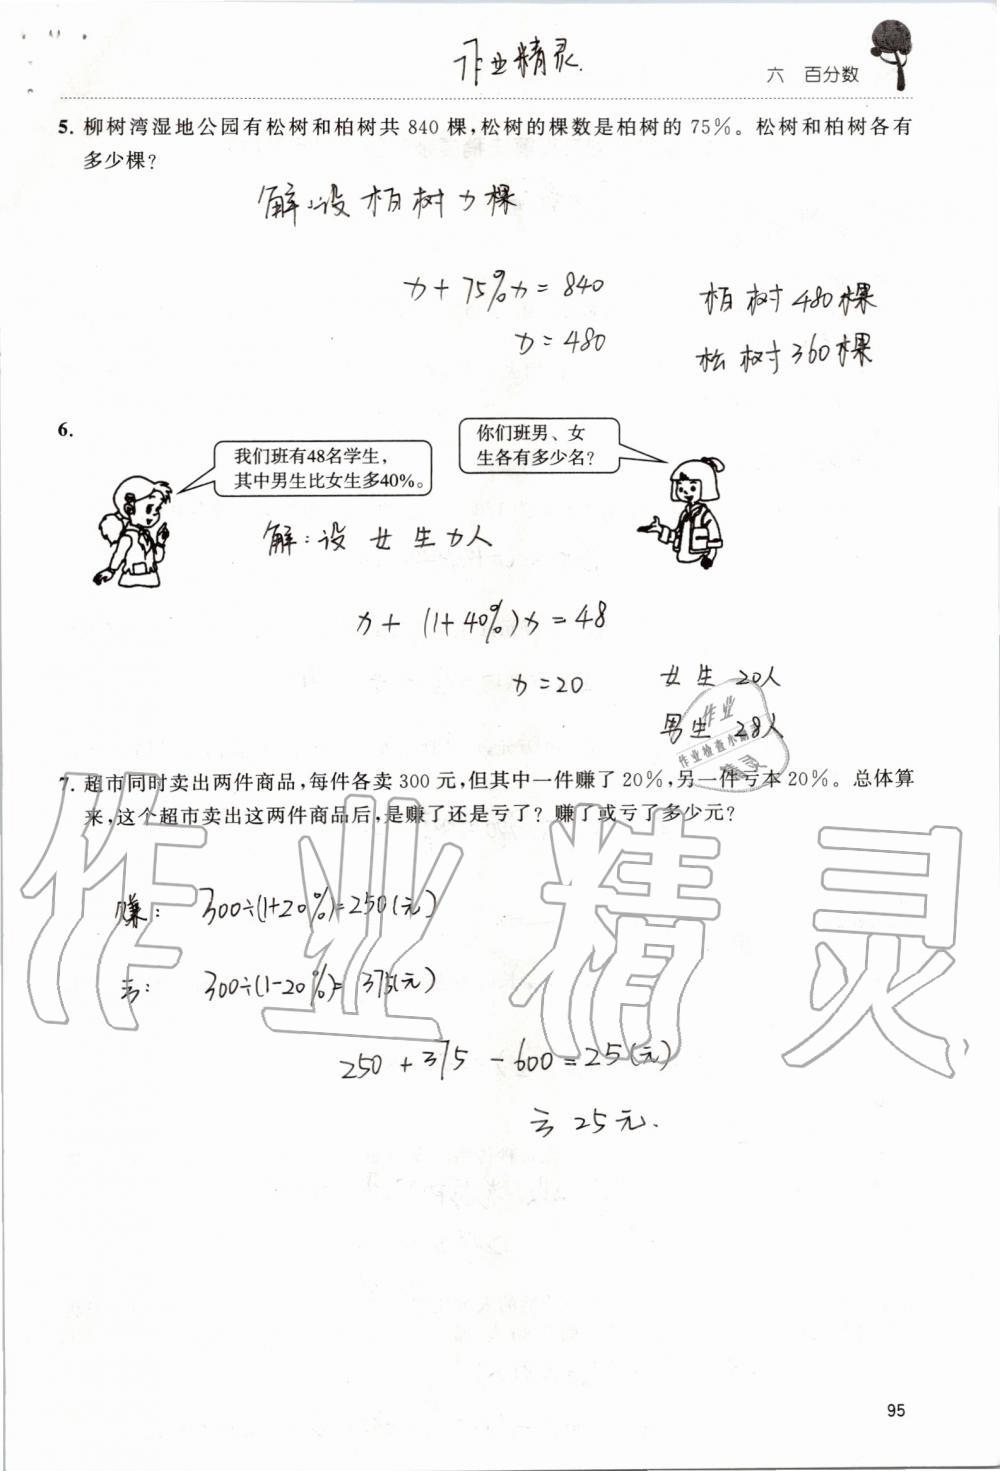 作业精灵.
六 百分数
5. 柳树湾湿地公园有松树和柏树共 840 棵,松树的棵数是柏树的 75%。松树和柏树各有
多少棵?
解:设柏树x棵
x+75%x=840
x=480
柏树480棵
松树360棵
6.
我们班有48名学生,
其中男生比女生多40%。
你们班男、女
生各有多少名?
解:设女生x人
x+(1+40%)x=48
x=20
女生 20人
男生 28人
作业
作业检查小精灵
精灵
7. 超市同时卖出两件商品,每件各卖 300 元,但其中一件赚了 20%,另一件亏本 20%。总体算
来,这个超市卖出这两件商品后,是赚了还是亏了? 赚了或亏了多少元?
作业精灵
赚: 300÷(1+20%)=250(元)
亏: 300÷(1-20%)=375(元)
250+375-600=25(元)
亏25元.
95